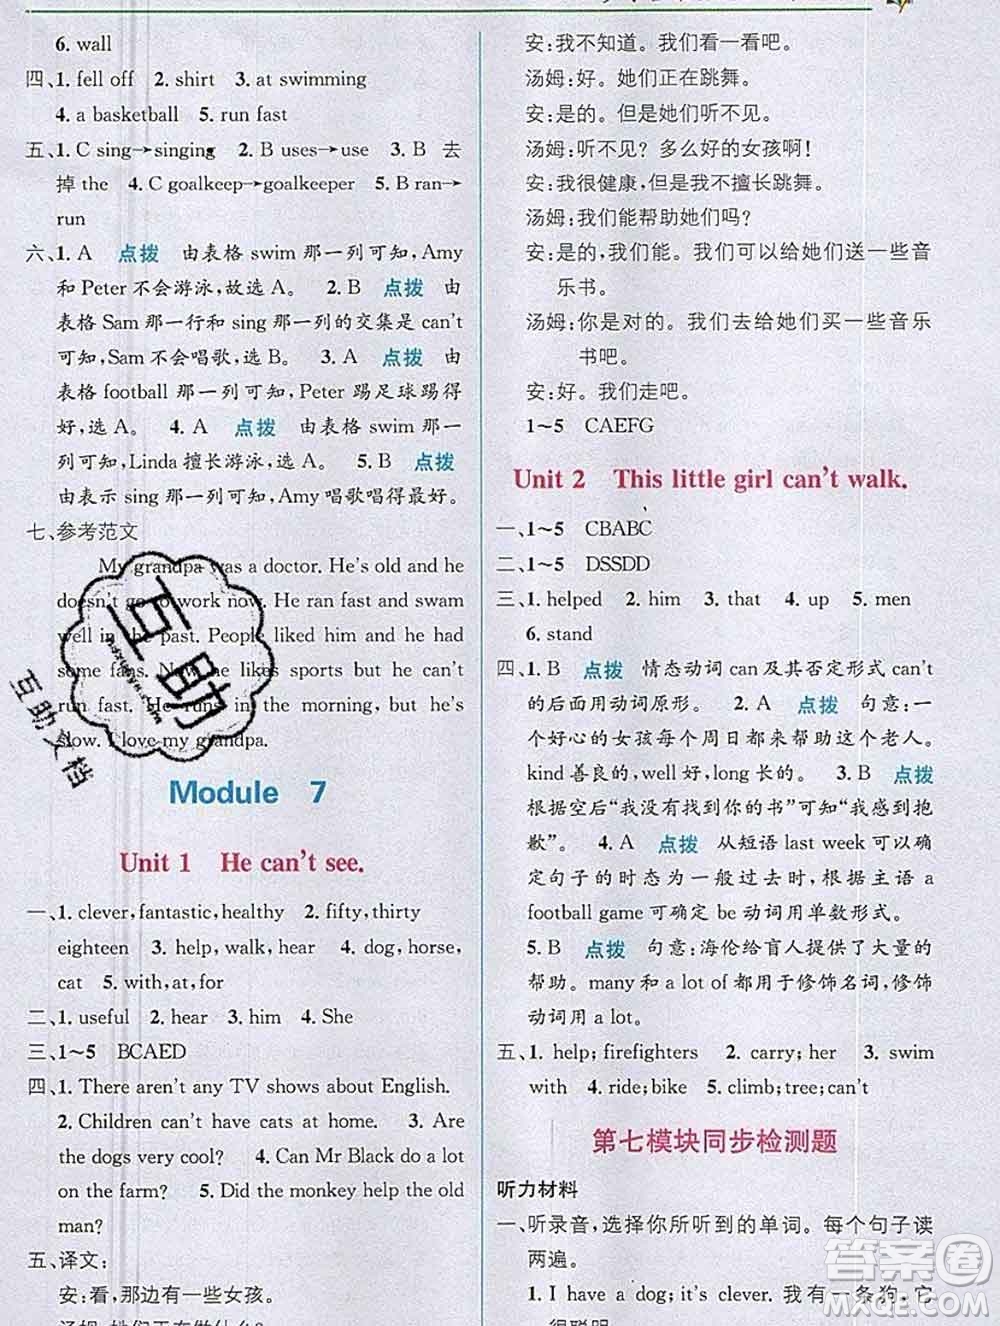 6. wall
四、1. fell off 2. shirt 3. at swimming
4. a basketball 5. run fast
五、1. C sing→singing 2. B uses→use 3. B 去
掉 the 4. C goalkeep→goalkeeper 5. B ran→
run
六、1. A 点拨 由表格 swim 那一列可知, Amy
和 Peter 不会游泳,故选 A。 2. B 点拨 由
表格 Sam 那一行和 sing 那一列的交集是 can't
可知, Sam 不会唱歌,选 B。 3. A 点拨 由
表格 football 那一列可知, Peter 踢足球踢得
好,选 A。 4. A 点拨 由表格 swim 那一
列可知, Linda 擅长游泳,选 A。 5. B 点拨
由表示 sing 那一列可知, Amy 唱歌唱得最好。
七、参考范文
My grandpa was a doctor. He's old and he
doesn't go to work now. He ran fast and swam
well in the past. People liked him and he had
some fans. Now he likes sports but he can't
run fast. He runs in the morning, but he's
slow. I love my grandpa.
Module 7
Unit 1 He can't see.
一、1. clever, fantastic, healthy 2. fifty, thirty
eighteen 3. help, walk, hear 4. dog, horse,
cat 5. with, at, for
二、1. useful 2. hear 3. him 4. She
三、1~5 BCAED
四、1. There aren't any TV shows about English.
2. Children can't have cats at home. 3. Are the
dogs very cool? 4. Can Mr Black do a lot
on the farm? 5. Did the monkey help the old
man?
五、译文:
安:看,那边有一些女孩。
汤姆:她们正在做什么?
安:我不知道。我们看一看吧。
汤姆:好。她们正在跳舞。
安:是的。但是她们听不见。
汤姆:听不见?多么好的女孩啊!
安:我很健康,但是我不擅长跳舞。
汤姆:我们能帮助她们吗?
安:是的,我们能。我们可以给她们送一些音
乐书。
汤姆:你是对的。我们去给她们买一些音乐
书吧。
安:好。我们走吧。
1~5 CAEFG
Unit 2 This little girl can't walk.
一、1~5 CBABC
二、1~5 DSSDD
三、1. helped 2. him 3. that 4. up 5. men
6. stand
四、1. B 点拨 情态动词 can 及其否定形式 can't
的后面用动词原形。 2. A 点拨 句意:一
个好心的女孩每个周日都来帮助这个老人。
kind 善良的, well 好, long 长的。 3. B 点拨
根据空后“我没有找到你的书”可知“我感到抱
歉”。 4. A 点拨 从短语 last week 可以确
定句子的时态为一般过去时,根据主语 a
football game 可确定 be 动词用单数形式。
5. B 点拨 句意:海伦给盲人提供了大量的
帮助。many 和 a lot of 都用于修饰名词,修饰
动词用 a lot。
五、1. help; firefighters 2. carry; her 3. swim
with 4. ride; bike 5. climb; tree; can't
第七模块同步检测题
听力材料
一、听录音,选择你所听到的单词。每个句子读
两遍。
1. I have a dog; it's clever. 我有一条狗,它
很聪明。
互助
互助文档
答案圈
MXQE.COM